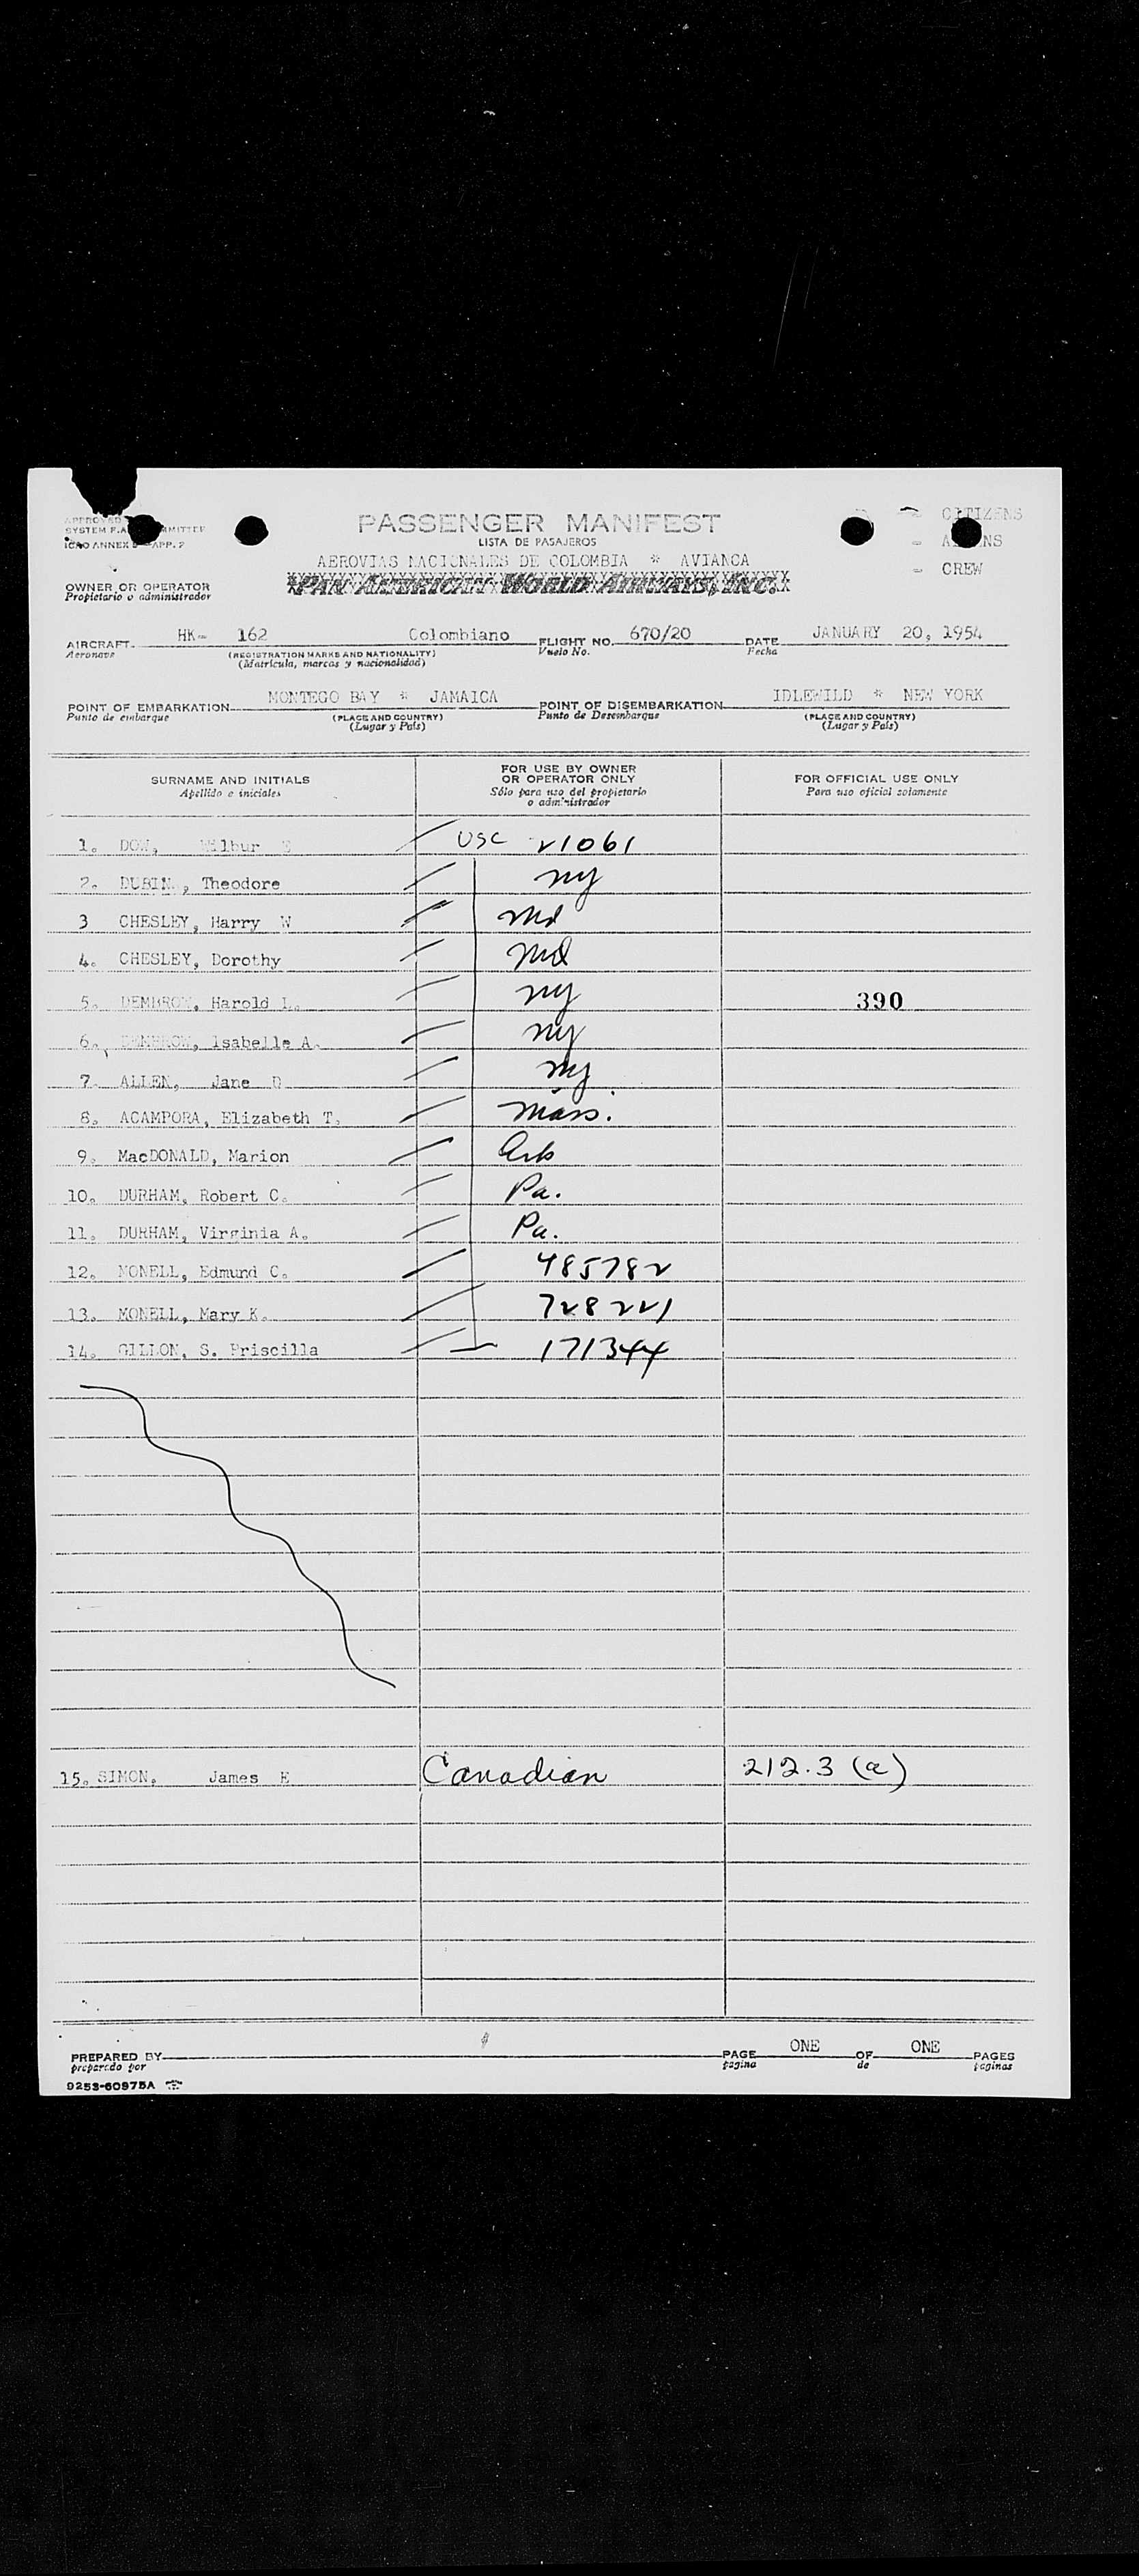 APPROVED
SYSTEM F.A. COMMITTEE
ICAO ANNEX 9 APP. 2
PASSENGER MANIFEST
LISTA DE PASAJEROS
AEROVIAS NACIONALES DE COLOMBIA * AVIANCA
PAN AMERICAN WORLD AIRWAYS, INC.
- CITIZENS
- ALIENS
- CREW
OWNER OR OPERATOR
Propietario o administrador
AIRCRAFT HK- 162 Colombiano FLIGHT NO. 670/20 DATE JANUARY 20, 1954
Aeronave (REGISTRATION MARKS AND NATIONALITY) Vuelo No. Fecha
(Matrícula, marcas y nacionalidad)
POINT OF EMBARKATION MONTEGO BAY * JAMAICA POINT OF DISEMBARKATION IDLEWILD * NEW YORK
Punto de embarque (PLACE AND COUNTRY) Punto de Desembarque (PLACE AND COUNTRY)
(Lugar y País) (Lugar y País)
SURNAME AND INITIALS
Apellido e iniciales
FOR USE BY OWNER
OR OPERATOR ONLY
Sólo para uso del propietario
o administrador
FOR OFFICIAL USE ONLY
Para uso oficial solamente
1. DOW, Wilbur E USC 21061
2. DUBIN, Theodore ny
3 CHESLEY, Harry W Md
4. CHESLEY, Dorothy Md
5. DEMBROW, Harold L. ny 390
6. DEMBROW, Isabelle A. ny
7. ALLEN, Jane D ny
8. ACAMPORA, Elizabeth T. Mass.
9. MacDONALD, Marion Ark
10. DURHAM, Robert C. Pa.
11. DURHAM, Virginia A. Pa.
12. MONELL, Edmund C. 485782
13. MONELL, Mary K. 728221
14. GILLON, S. Priscilla 171344
15. SIMON, James E Canadian 212.3 (a)
PREPARED BY PAGE ONE OF ONE PAGES
preparado por página de páginas
9253-60975A